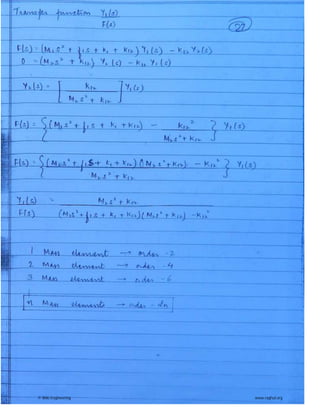 Transfer function Y₁(s)
F(s)
(27)
F(s) = (M₁s² + f₁s + k₁ + k₁₂) Y₁(s) − k₁₂ Y₂(s)
0 = (M₂s² + k₁₂) Y₂(s) − k₁₂ Y₁(s)
Y₂(s) = [ k₁₂ ] Y₁(s)
M₂s² + k₁₂
F(s) = { (M₁s² + f₁s + k₁ + k₁₂) − k₁₂² } Y₁(s)
M₂s² + k₁₂
F(s) = { (M₁s² + f₁s + k₁ + k₁₂)(M₂s² + k₁₂) − k₁₂² } Y₁(s)
M₂s² + k₁₂
Y₁(s) = M₂s² + k₁₂
F(s) (M₁s² + f₁s + k₁ + k₁₂)(M₂s² + k₁₂) − k₁₂²
1 Mass element → order - 2
2 Mass element → order - 4
3 Mass element → order - 6
n Mass elements → order - 2n